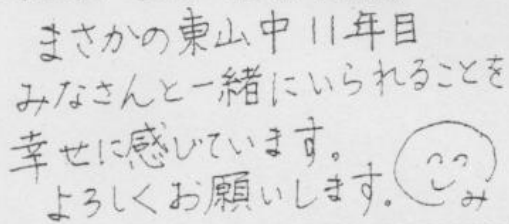 まさかの東山中11年目
みなさんと一緒にいられることを
幸せに感じています。
よろしくお願いします。
み